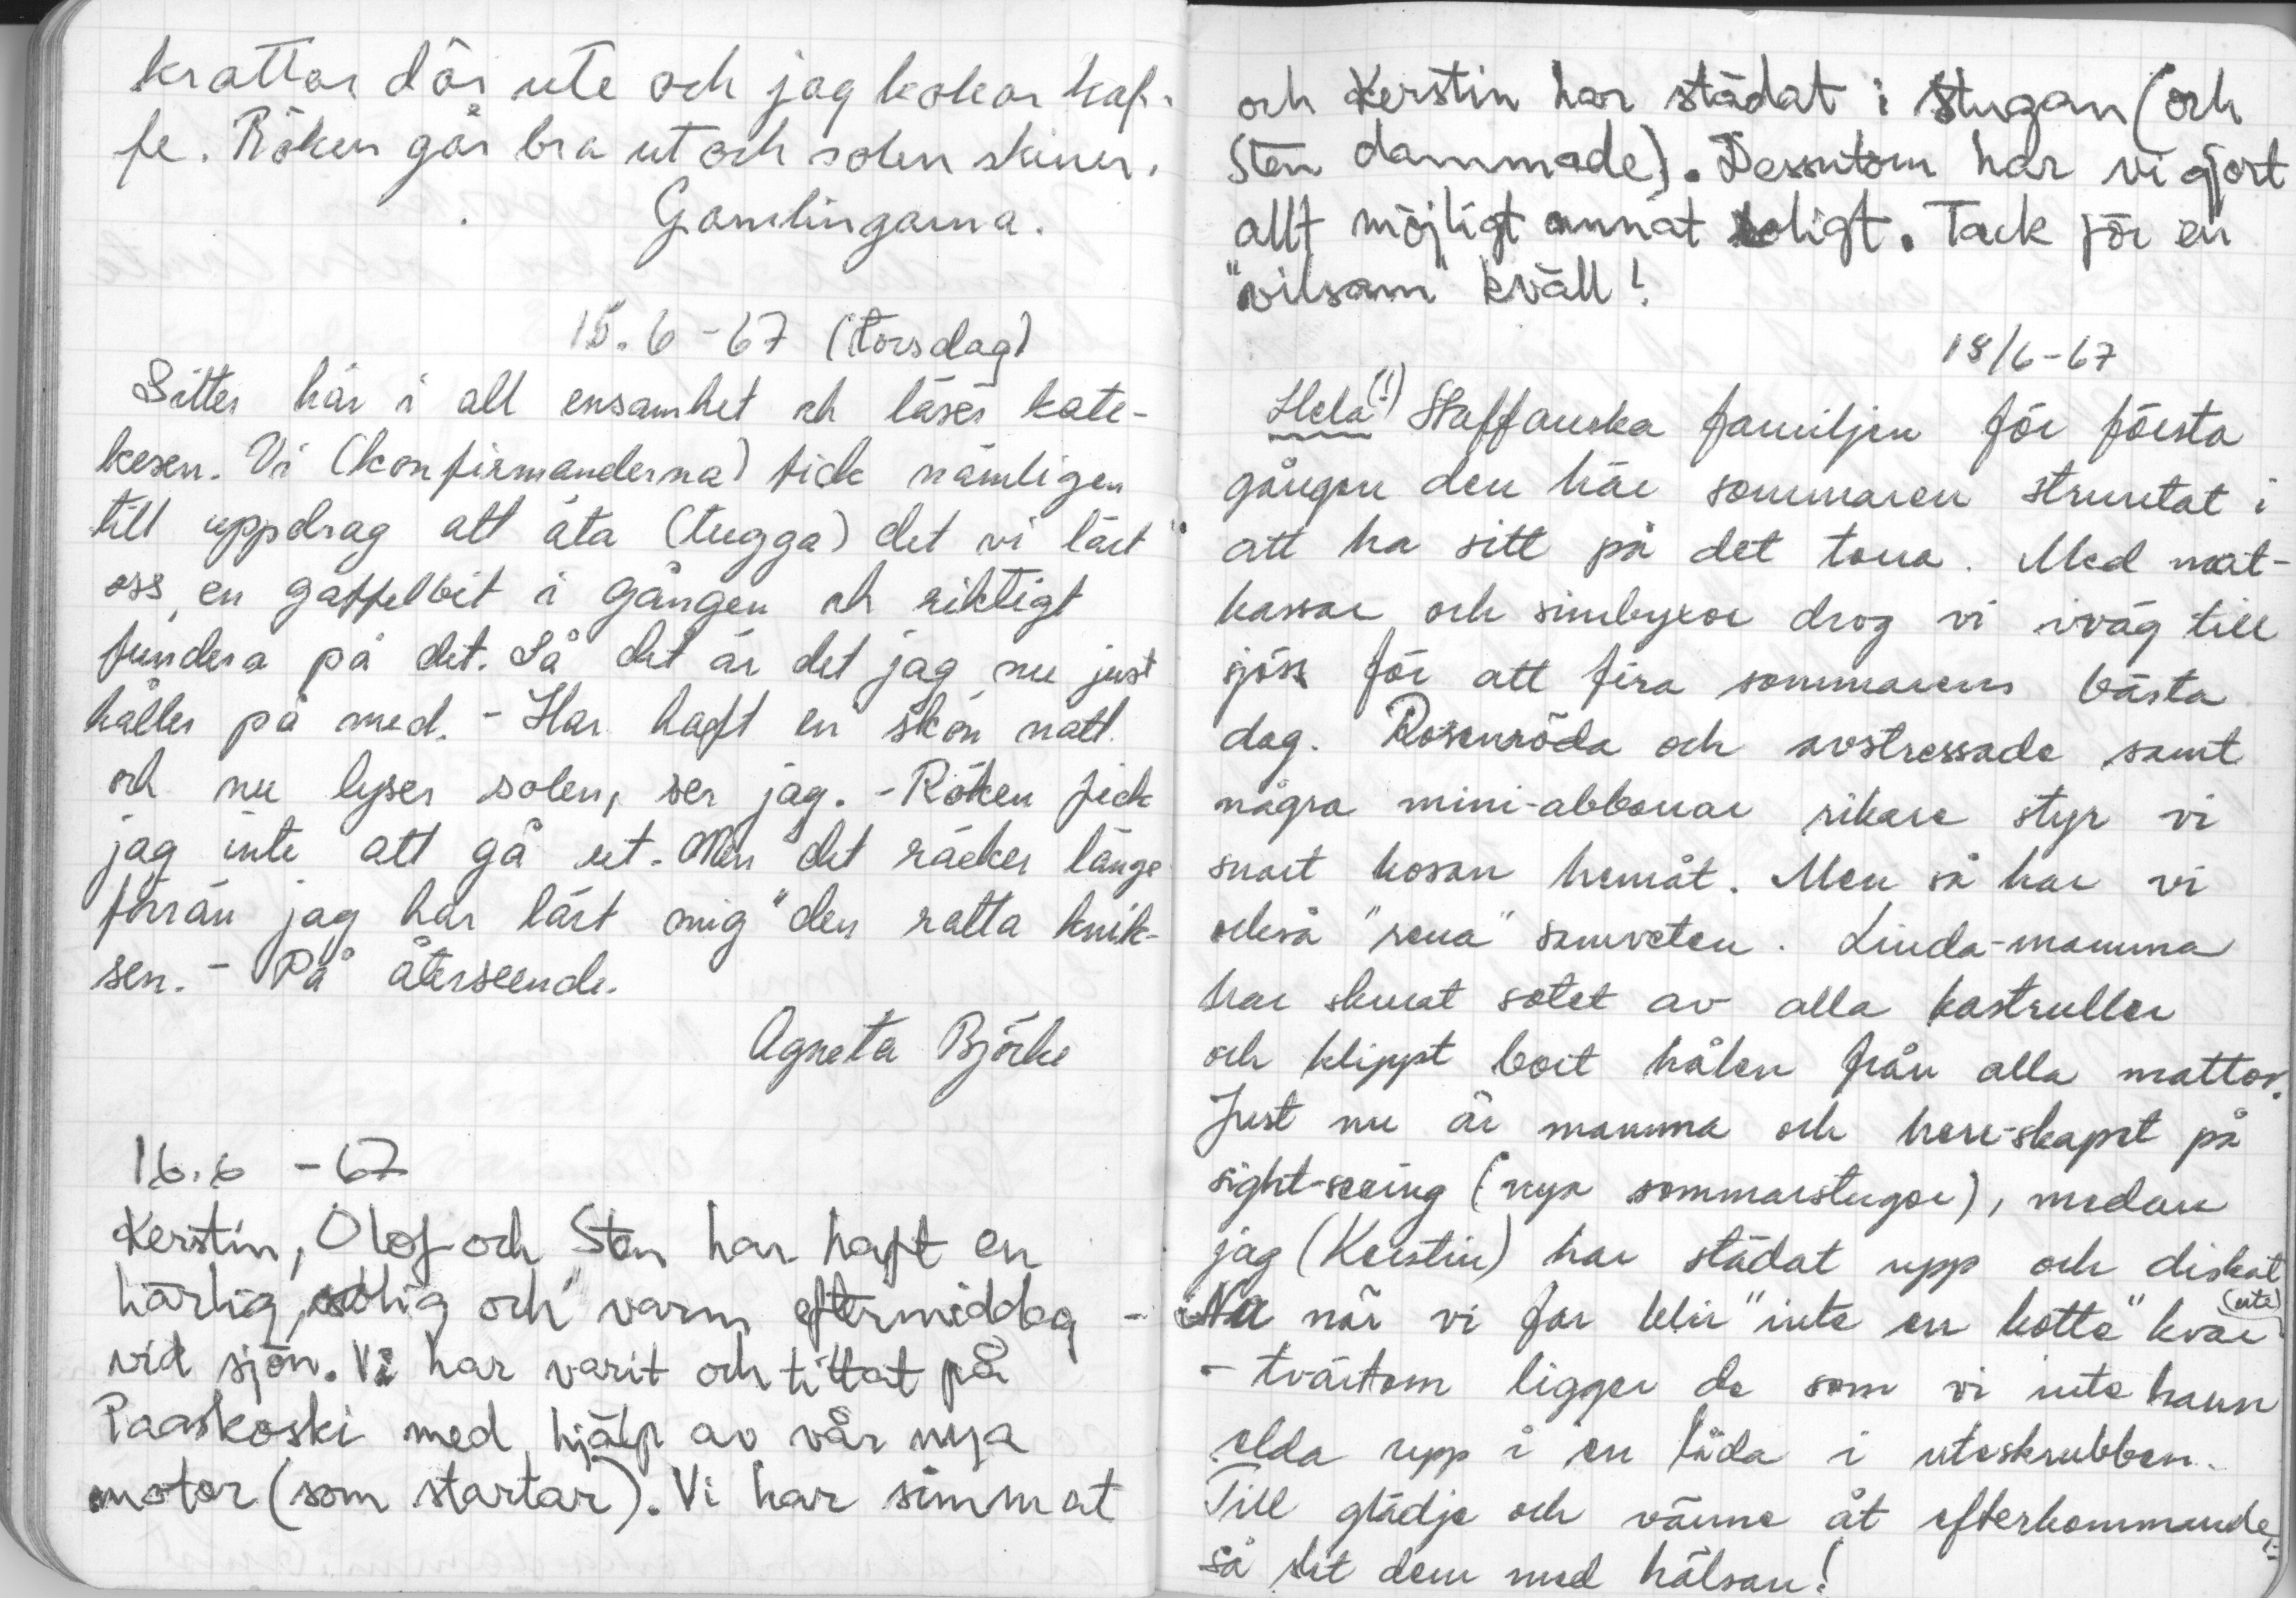 krattar där ute och jag kokar kaf-
fe. Röken går bra ut och solen skiner.
Gamlingarna.
15.6-67 (torsdag)
Sitter här i all ensamhet och läser kate-
kesen. Vi (konfirmanderna) fick nämligen
till uppdrag att äta (tugga) det vi lärt
oss, en gaffelbit i gången och riktigt
fundera på det. Så det är det jag nu just
håller på med. - Har haft en skön natt
och nu lyser solen, ser jag. - Röken fick
jag inte att gå ut. Men det räcker länge
förrän jag har lärt mig "den rätta knik-
sen. - På återseende.
Agneta Björke
16.6 -67
Kerstin, Olof och Sten har haft en
härlig, solig och varm eftermiddag
vid sjön. Vi har varit och tittat på
Paaskoski med hjälp av vår nya
motor (som startar). Vi har simmat
och Kerstin har städat i stugan (och
Sten dammade). Dessutom har vi gjort
allt möjligt annat roligt. Tack för en
"vilsam" kväll!
18/6-67
Hela (!) Staffanska familjen för första
gången den här sommaren struntat i
att ha sitt på det torra. Med mat-
kassar och simbyxor drog vi iväg till
sjöss för att fira sommarens bästa
dag. Rosenröda och avstressade samt
några mini-abborrar rikare styr vi
snart kosan hemåt. Men så har vi
också "rena" samveten. Linda-mamma
har skurat sotet av alla kastruller
och klippt bort hålen från alla mattor.
Just nu är mamma och herr-skapet på
sight-seeing (nya sommarstugor), medan
jag (Kerstin) har städat upp och diskat
- Nä när vi far blir "inte en kotte" kvar (ute)
- tvärtom ligger de som vi inte hann
elda upp i en låda i uteskrubben.
Till glädje och värme åt efterkommande:
så det dem med hälsan!